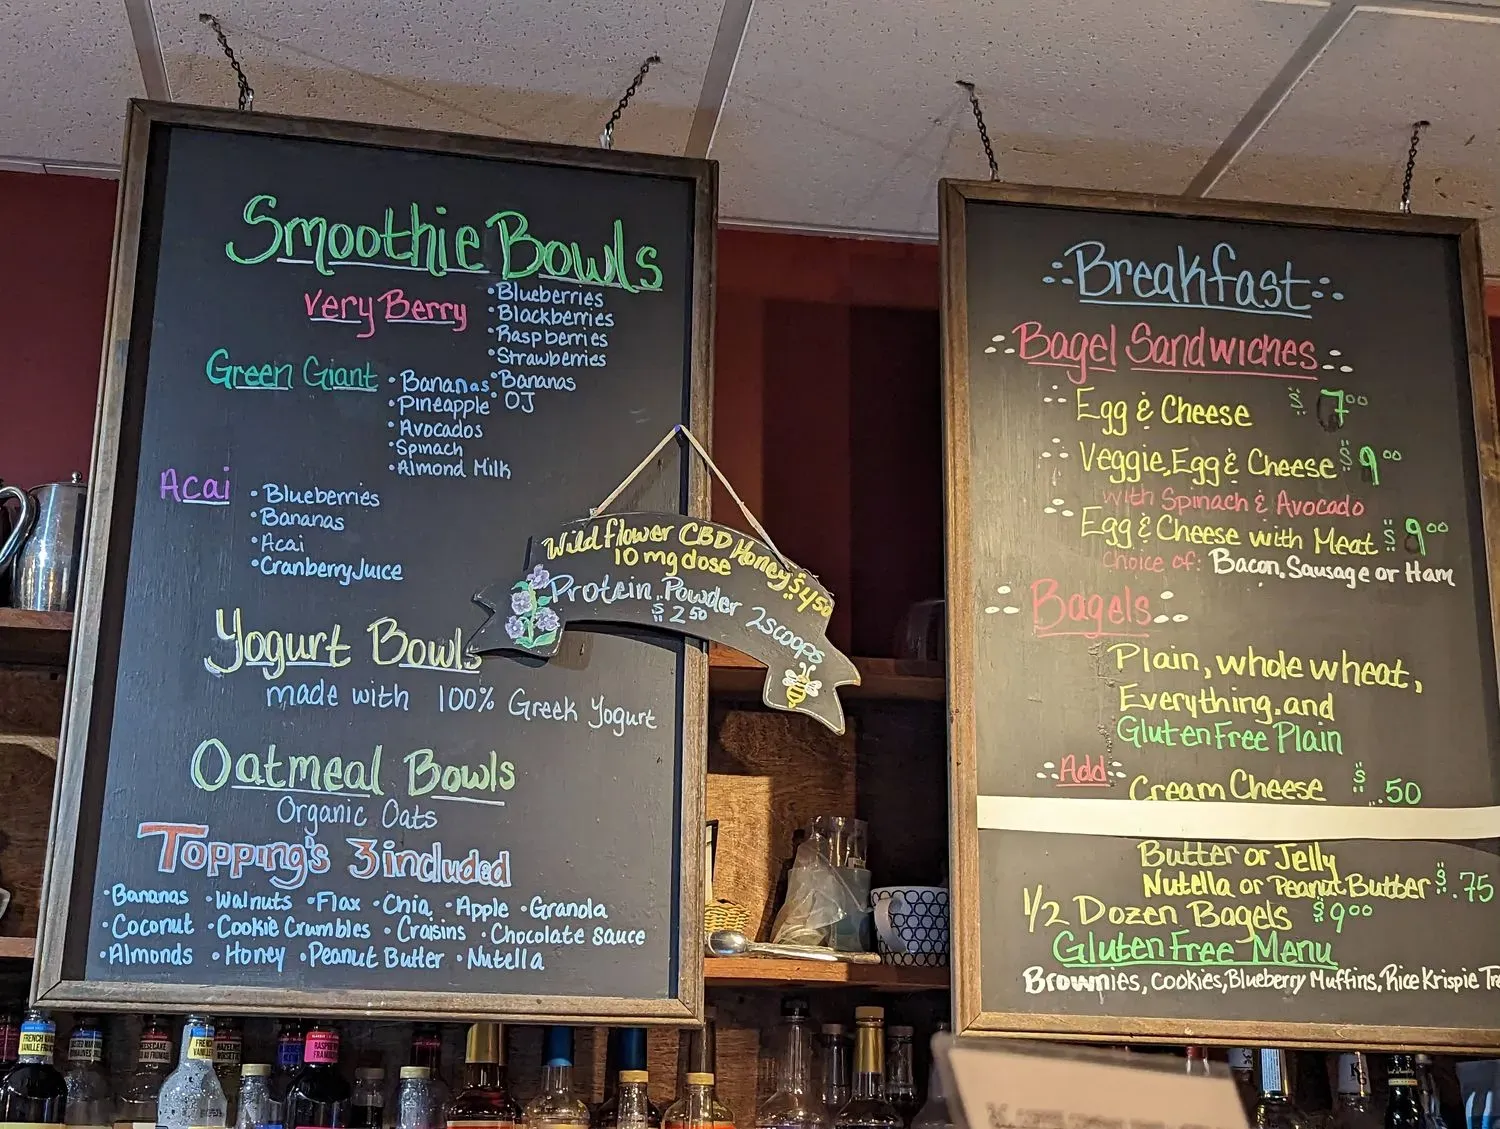 Smoothie Bowls
Very Berry
• Blueberries
• Blackberries
• Raspberries
• Strawberries
• Bananas
• OJ
Green Giant
• Bananas
• Pineapple
• Avocados
• Spinach
• Almond Milk
Acai
• Blueberries
• Bananas
• Acai
• Cranberry Juice
Yogurt Bowls
made with 100% Greek Yogurt
Oatmeal Bowls
Organic Oats
Topping's 3 included
• Bananas • Walnuts • Flax • Chia • Apple • Granola
• Coconut • Cookie Crumbles • Craisins • Chocolate sauce
• Almonds • Honey • Peanut Butter • Nutella
Wildflower CBD Honey $4.50
10 mg dose
Protein Powder 2 scoops
$2.50
Breakfast
Bagel Sandwiches
Egg & Cheese $7.00
Veggie, Egg & Cheese $9.00
with Spinach & Avocado
Egg & Cheese with Meat $9.00
choice of: Bacon, Sausage or Ham
Bagels
Plain, whole wheat,
Everything, and
Gluten Free Plain
Add
Cream Cheese $.50
Butter or Jelly
Nutella or Peanut Butter $.75
1/2 Dozen Bagels $9.00
Gluten Free Menu
Brownies, Cookies, Blueberry Muffins, Rice Krispie Tre
FRENCH
VANILLA